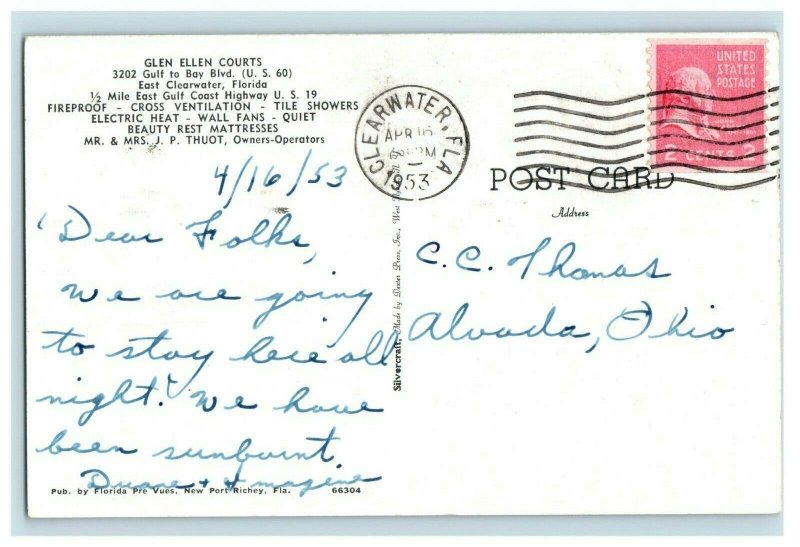 GLEN ELLEN COURTS
3202 Gulf to Bay Blvd. (U. S. 60)
East Clearwater, Florida
½ Mile East Gulf Coast Highway U. S. 19
FIREPROOF - CROSS VENTILATION - TILE SHOWERS
ELECTRIC HEAT - WALL FANS - QUIET
BEAUTY REST MATTRESSES
MR. & MRS. J. P. THUOT, Owners-Operators
4/16/53
Dear Folks,
We are going
to stay here all
night. We have
been sunburnt.
Duane + Imagene
Pub. by Florida Pre Vues, New Port Richey, Fla. 66304
Silvercraft, Made by Dexter Press, Inc., West
CLEARWATER, FLA.
APR 16
PM
1953
UNITED
STATES
POSTAGE
JOHN
2 CENTS 2
POST CARD
Address
C. C. Thomas
Alvada, Ohio